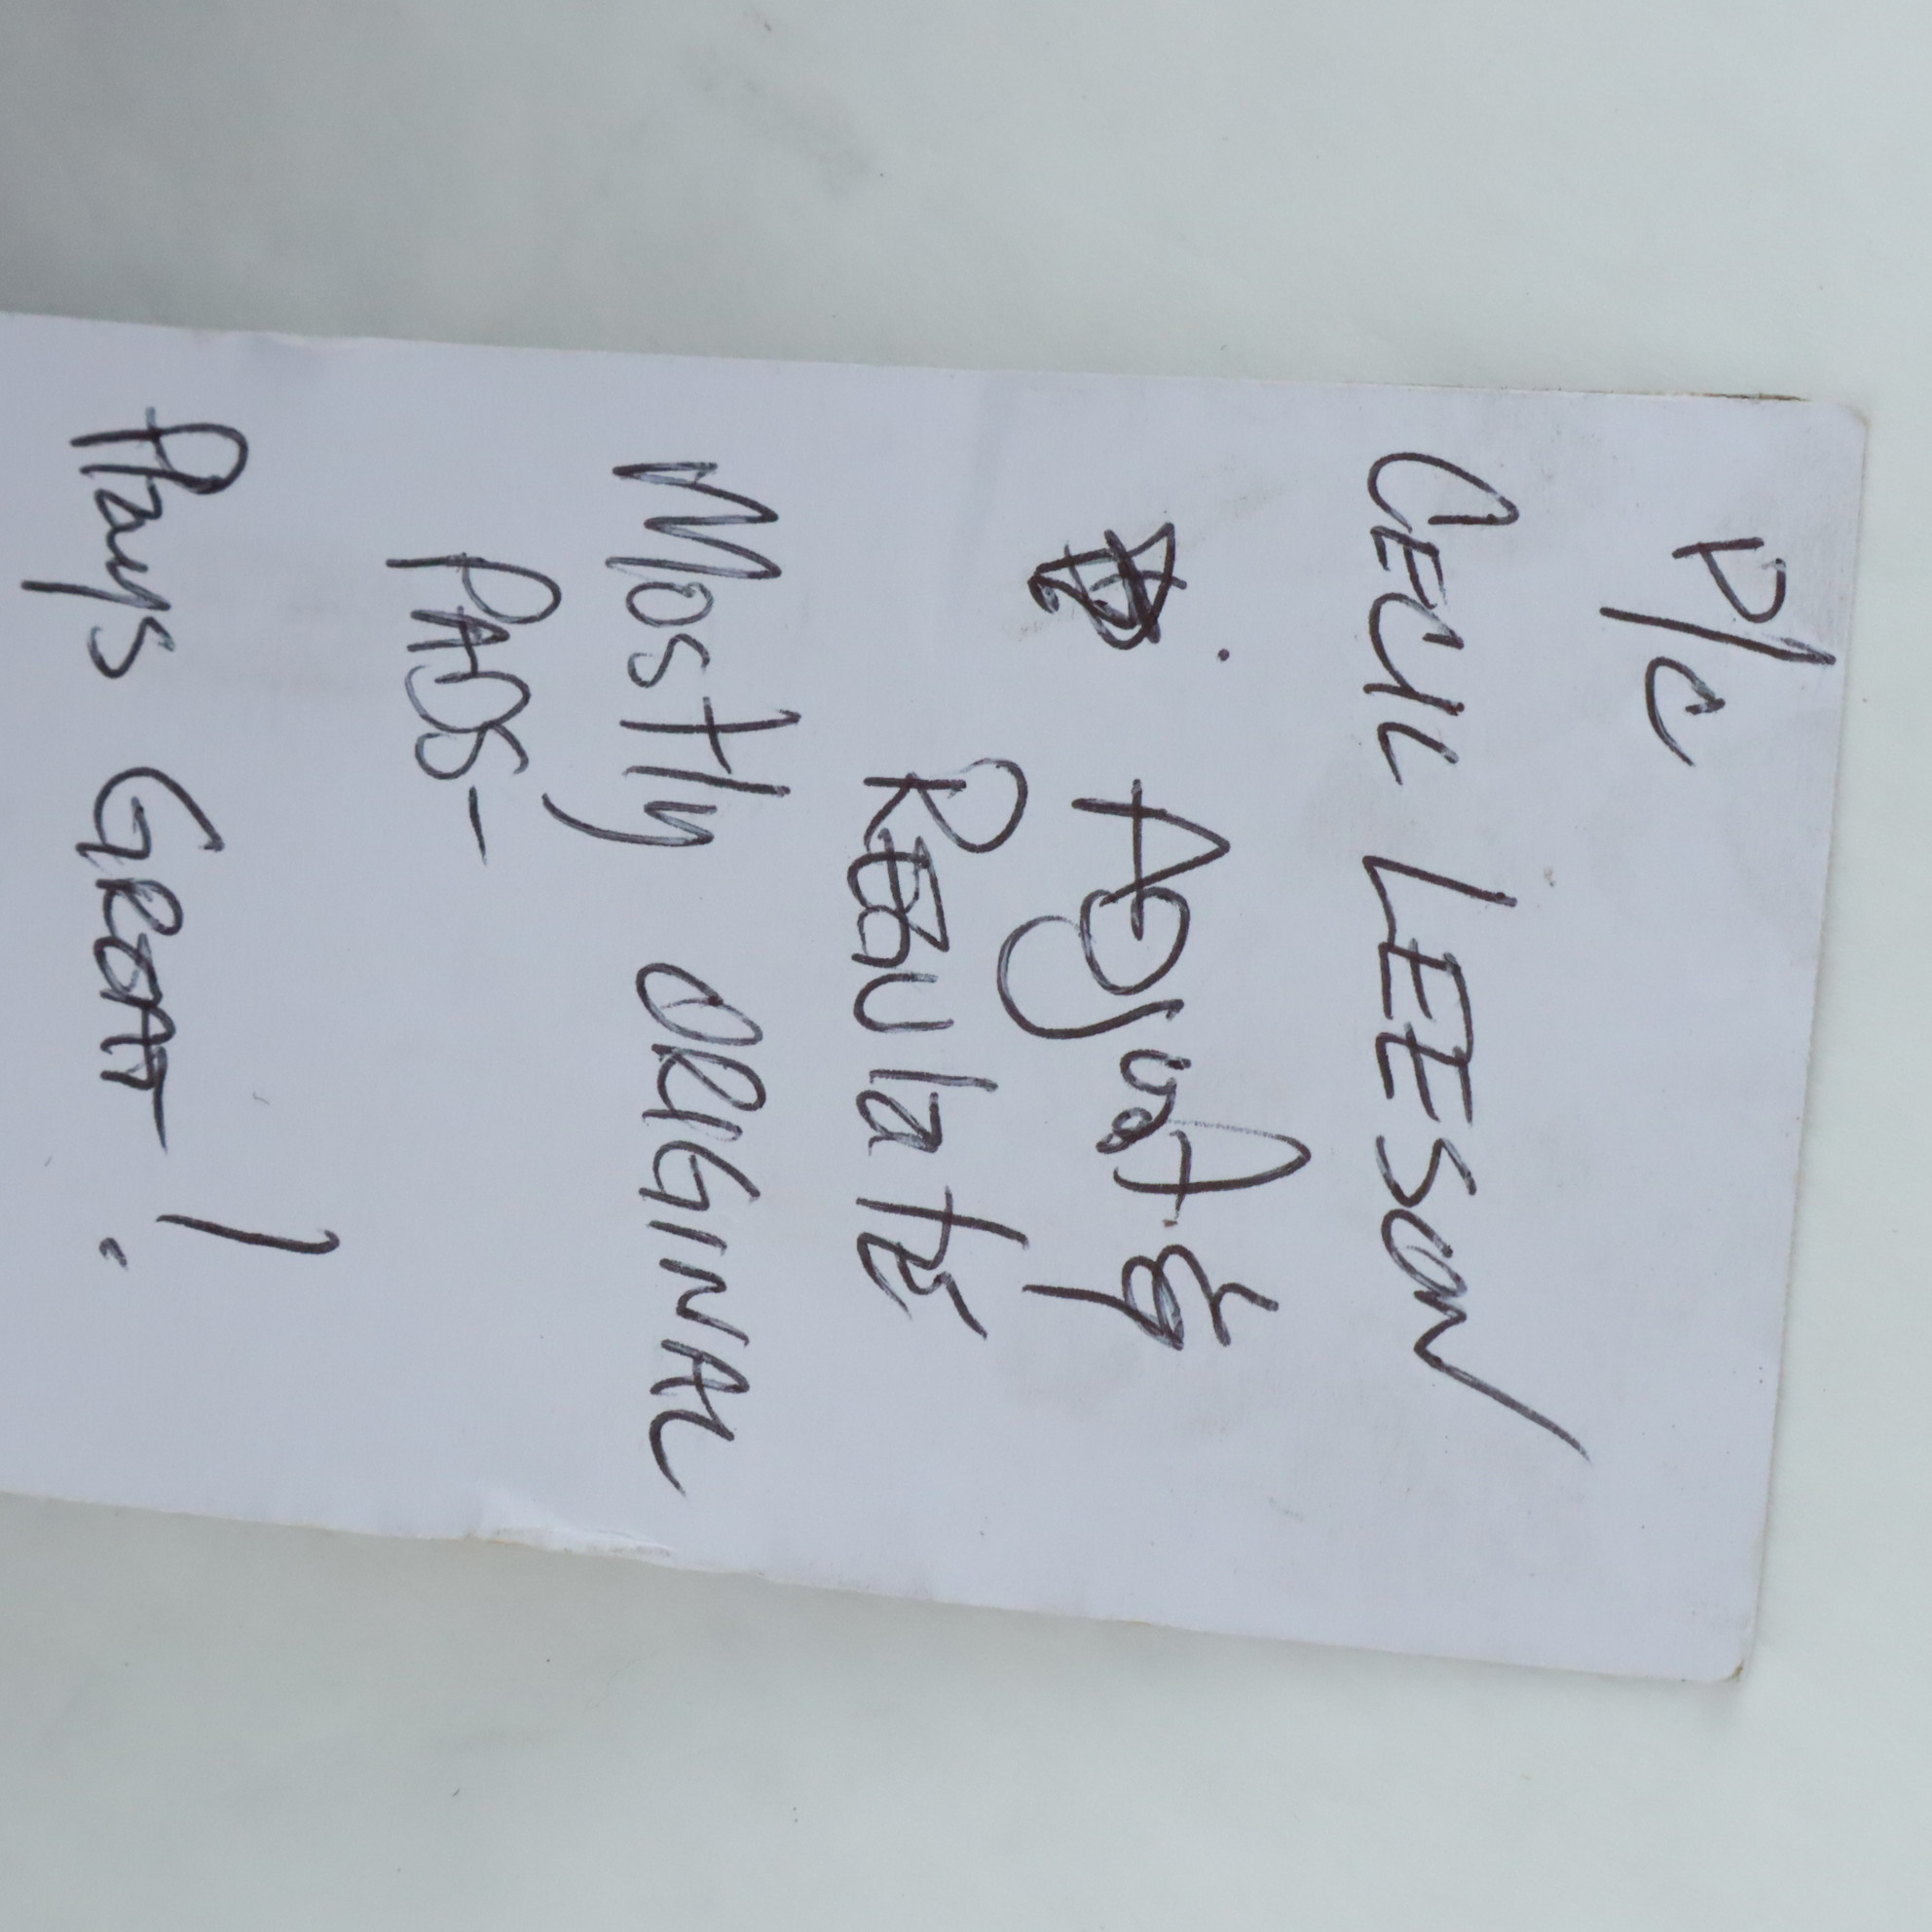 P/C
CECIL LEESON
Adjust &
Regulate
Mostly ORIGINAL
PADS-
Plays GREAT!